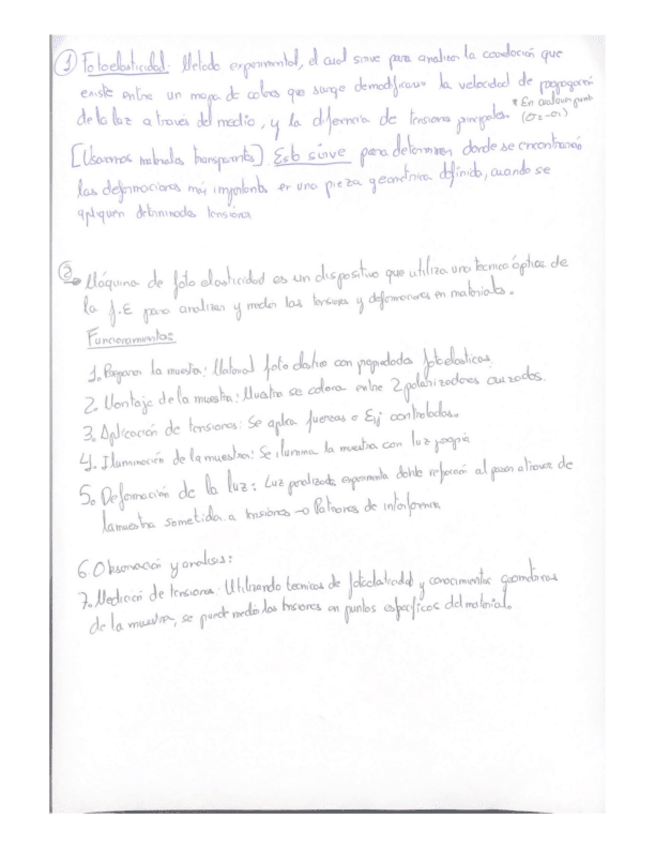 ① Fotoelasticidad: Método experimental, el cual sirve para analizar la correlación que
existe entre un mapa de colores que surge de modificar la velocidad de propagación
de la luz a través del medio, y la diferencia de tensiones principales (σ2-σ1) * En cualquier punto
[Usamos materiales transparentes]. Esto sirve para determinar donde se encontrarán
las deformaciones más importantes en una pieza geométrica definida, cuando se
apliquen determinadas tensiones
② Máquina de foto elasticidad es un dispositivo que utiliza una tecnica óptica de
la f.E para analizar y medir las tensiones y deformaciones en materiales.
Funcionamiento:
1. Preparar la muestra: Material foto elastico con propiedades fotoelasticas
2. Montaje de la muestra: Muestra se coloca entre 2 polarizadores cruzados.
3. Aplicación de tensiones: Se aplica fuerzas o Eij controladas.
4. Iluminación de la muestra: Se ilumina la muestra con luz
5. Deformación de la luz: Luz polarizada experimenta doble refracción al pasar a traves de
la muestra sometida a tensiones → Patrones de interferencia
6. Observación y analisis:
7. Medición de tensiones: Utilizando tecnicas de fotoelasticidad y conocimientos geometricos
de la muestra, se puede medir las tensiones en puntos específicos del material.